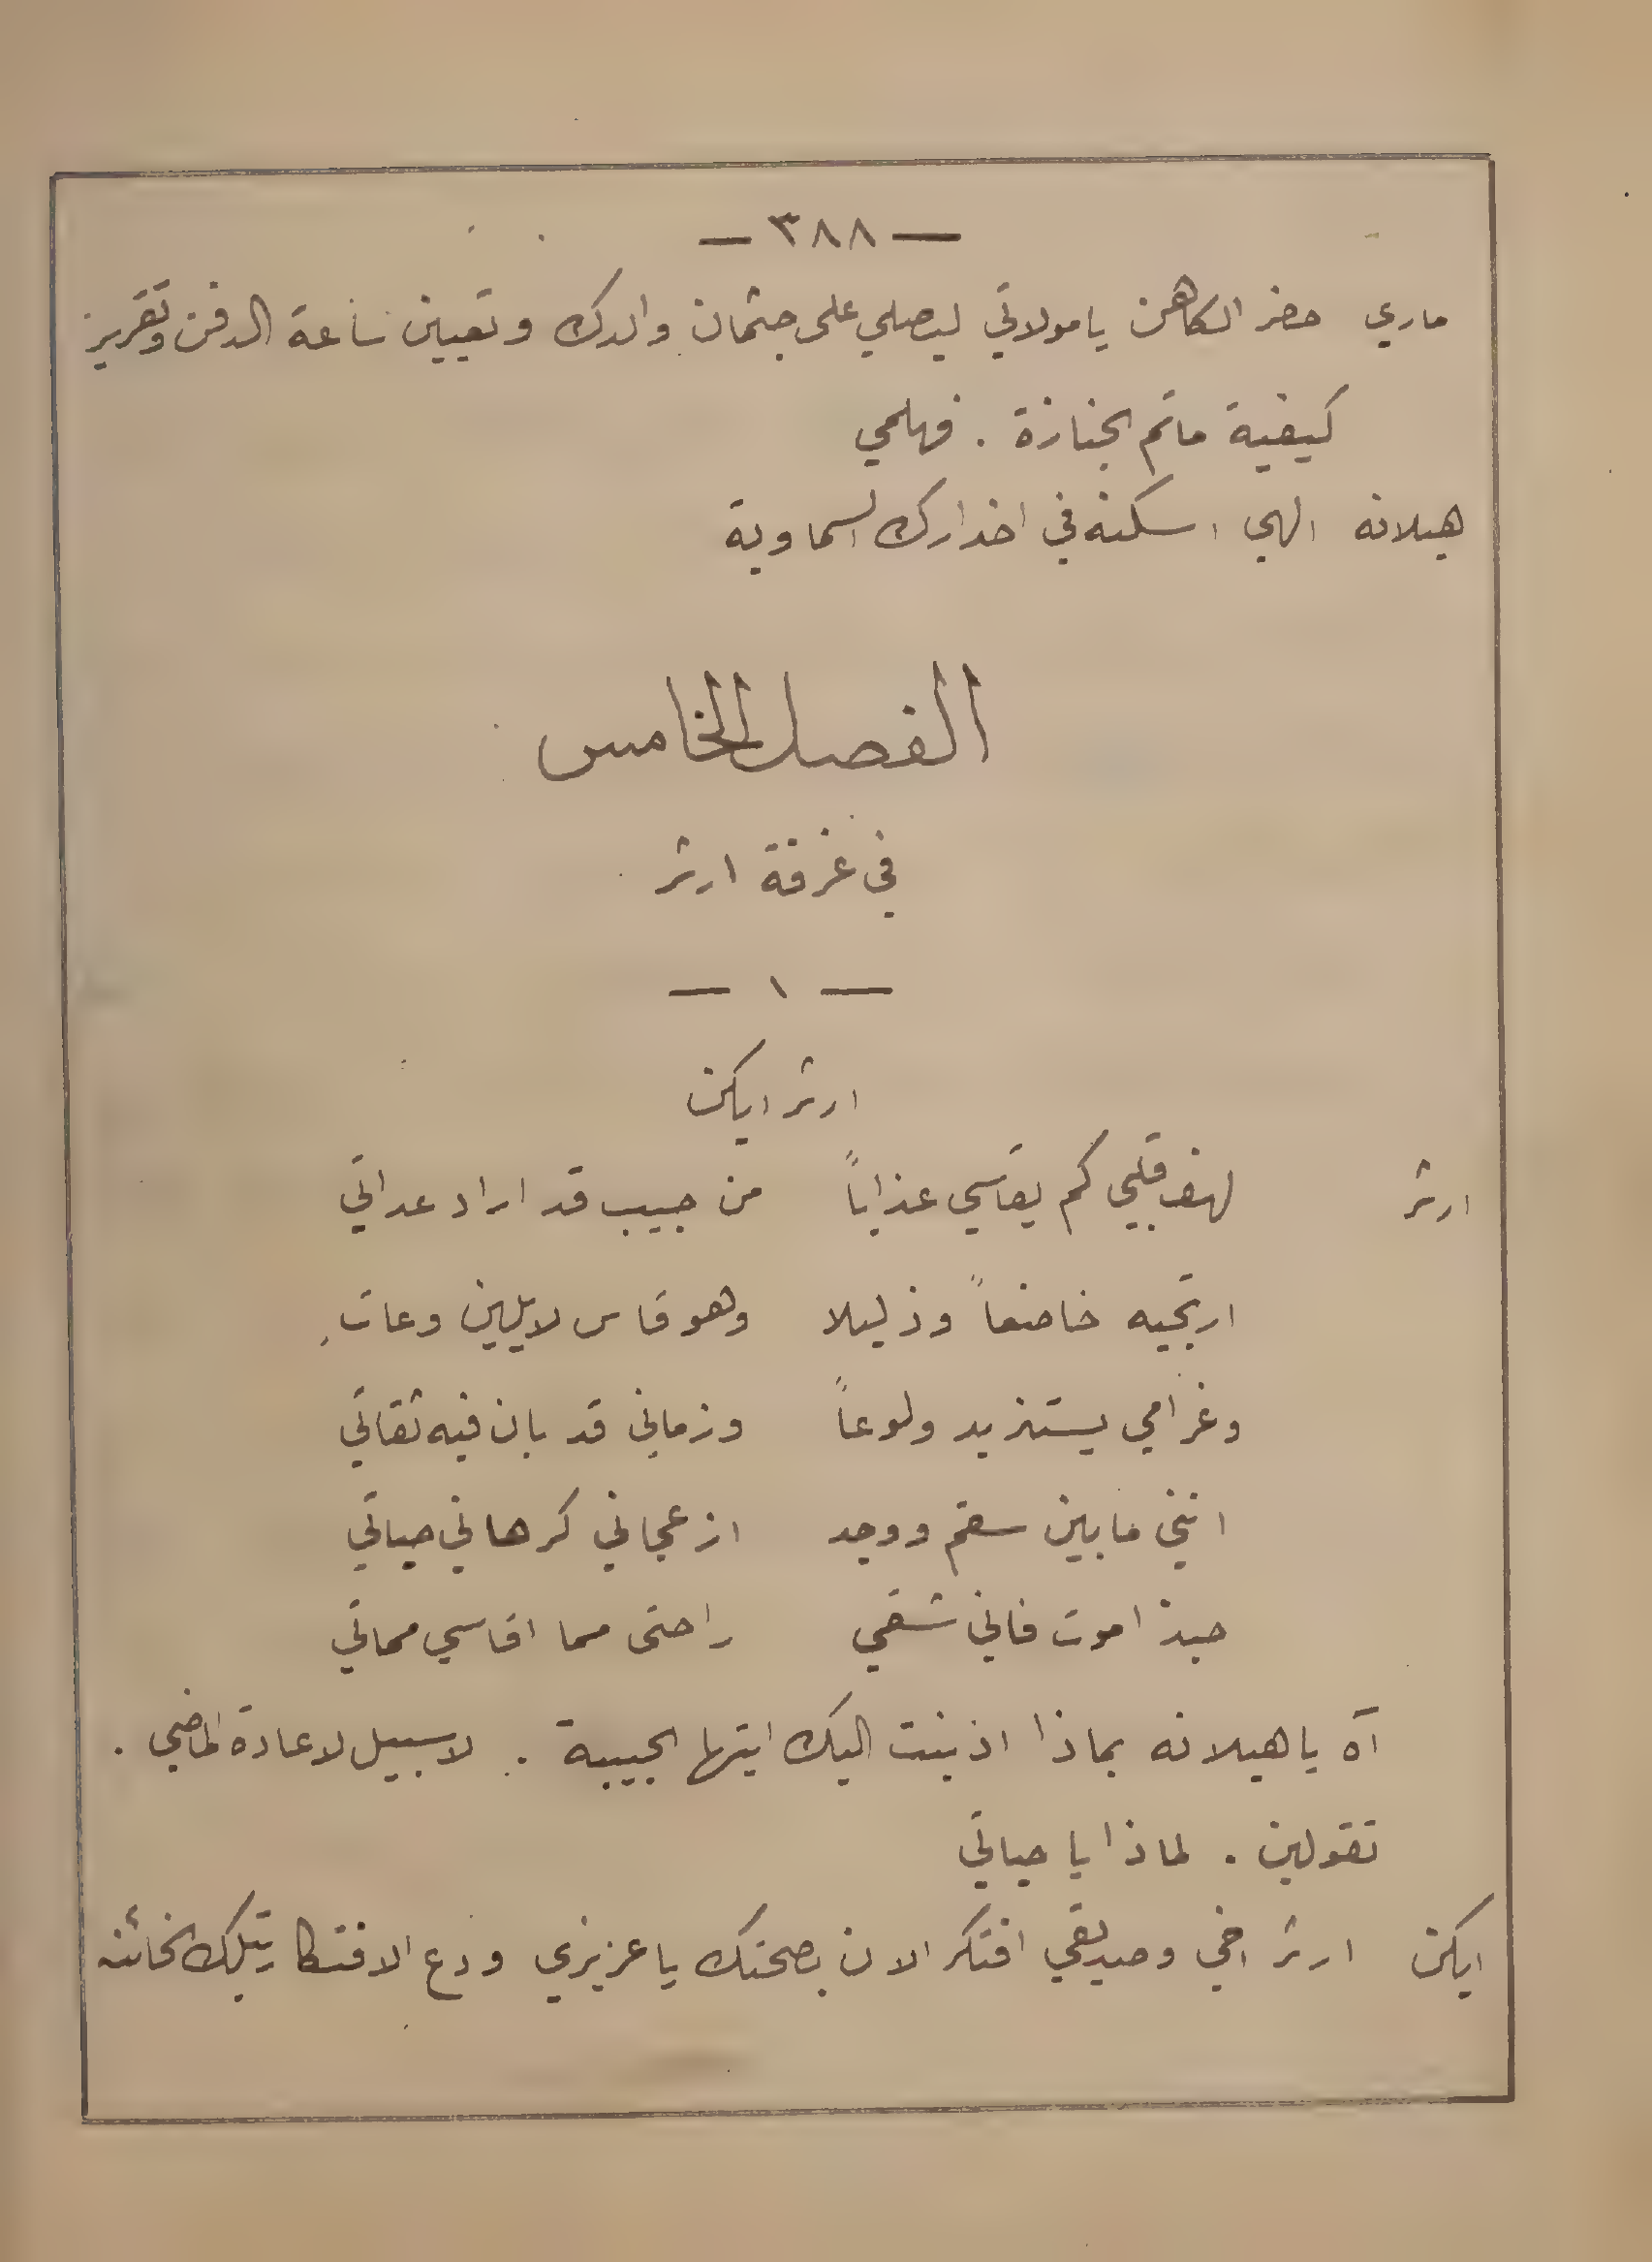 — ٣٨٨ —
ماري حضر الكاهن يا مولاتي ليصلي على جثمان والدك وتعيين ساعة الدفن وتقرير
كيفية ماتم الجنازة . فهلمي
هيلانه الهي اسكنه في اخدارك السماوية
الفصل الخامس
في غرفة ارثر
— ١ —
ارثر ايكن
ارثر لهف قلبي كم يقاسي عذاباً من حبيب قد اراد عداتي
ارتجيه خاضعاً وذليلا وهو قاس لا يلين وعاتِ
وغرامي يستزيد ولوعاً وزماني قد بان فيه ثقاتي
انني ما بين سقم ووجد ازعجاني كرهاني حياتي
حبذ اموت فاني شقي راحتى مما اقاسي مماتي
آه يا هيلانه بماذا اذنبت اليك ايتها الحبيبة . لا سبيل لاعادة الماضي .
تقولين . لماذا يا حياتي
ايكن ارثر اخي وصديقي افتكر الان بصحتك يا عزيزي ودع الافتكار بتلك الخائنه